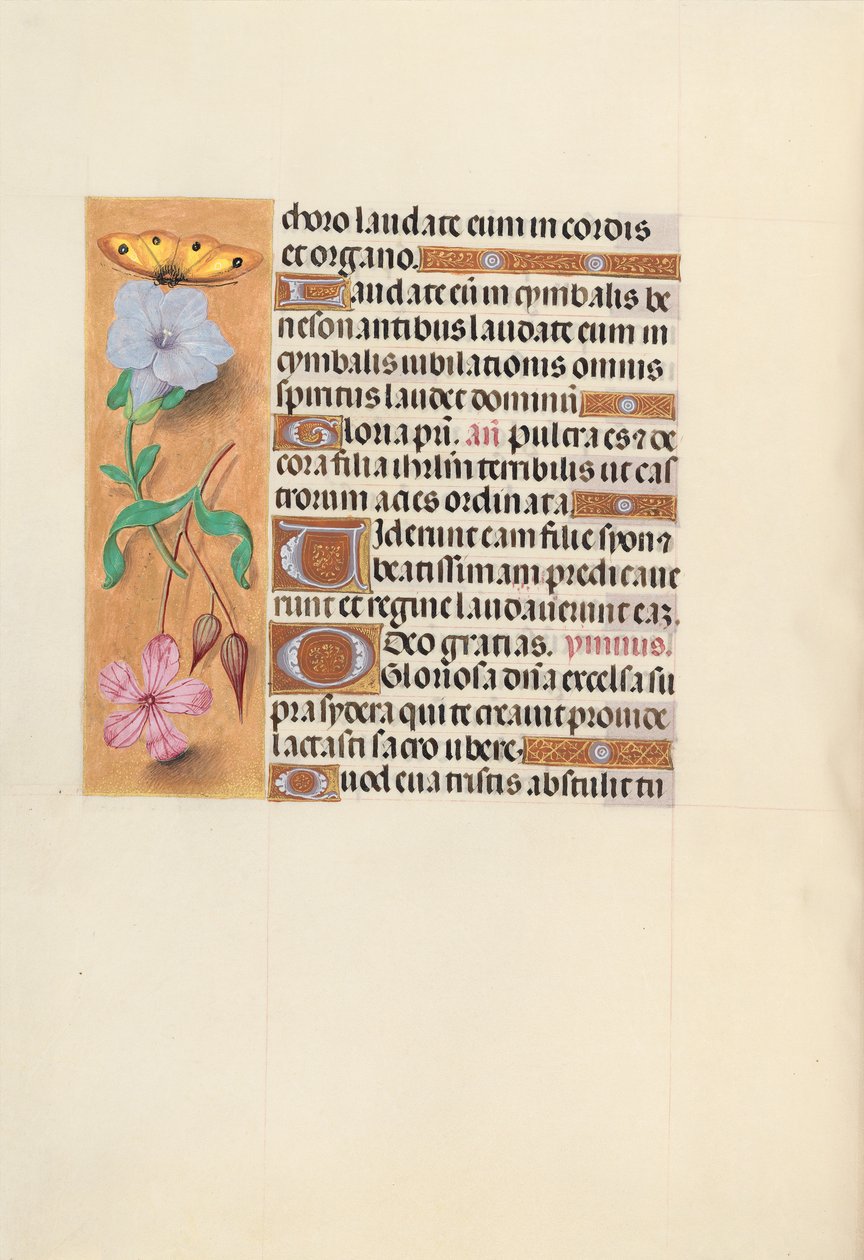 choro laudate eum in cordis
et organo.
Laudate eū in cymbalis be
nesonantibus laudate eum in
cymbalis iubilationis omnis
spiritus laudet dominū
Gloria pr̄i. an̄ Pulcra es ⁊ de
cora filia ihrl̄m terribilis ut cas
trorum acies ordinata
Uiderunt eam filie syon ⁊
beatissimam predicaue
runt et regine laudauerunt eaȝ.
Deo gratias. ymnus.
O Gloriosa dn̄a excelsa su
pra sydera qui te creauit prouide
lactasti sacro ubere,
Quod eua tristis abstulit tu